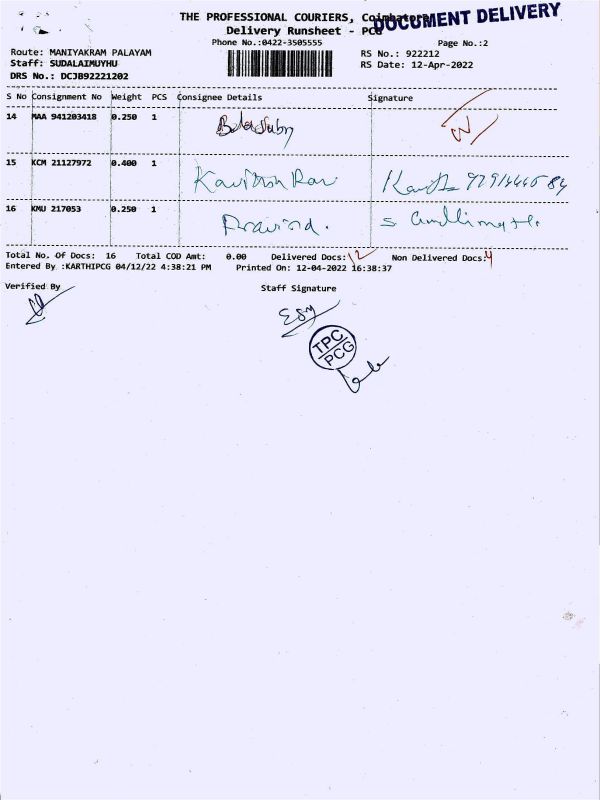 THE PROFESSIONAL COURIERS, Coimbatore
DOCUMENT DELIVERY
Delivery Runsheet - PCG
Phone No.:0422-3505555
Page No.:2
Route: MANIYAKRAM PALAYAM
RS No.: 922212
Staff: SUDALAIMUYHU
RS Date: 12-Apr-2022
DRS No.: DCJB92221202
S No Consignment No Weight PCS Consignee Details Signature
14 MAA 941203418 0.250 1
15 KCM 21127972 0.400 1
16 KMU 217053 0.250 1
Total No. Of Docs: 16 Total COD Amt: 0.00 Delivered Docs: 12 Non Delivered Docs: 4
Entered By :KARTHIPCG 04/12/22 4:38:21 PM Printed On: 12-04-2022 16:38:37
Verified By Staff Signature
TPC
PCG